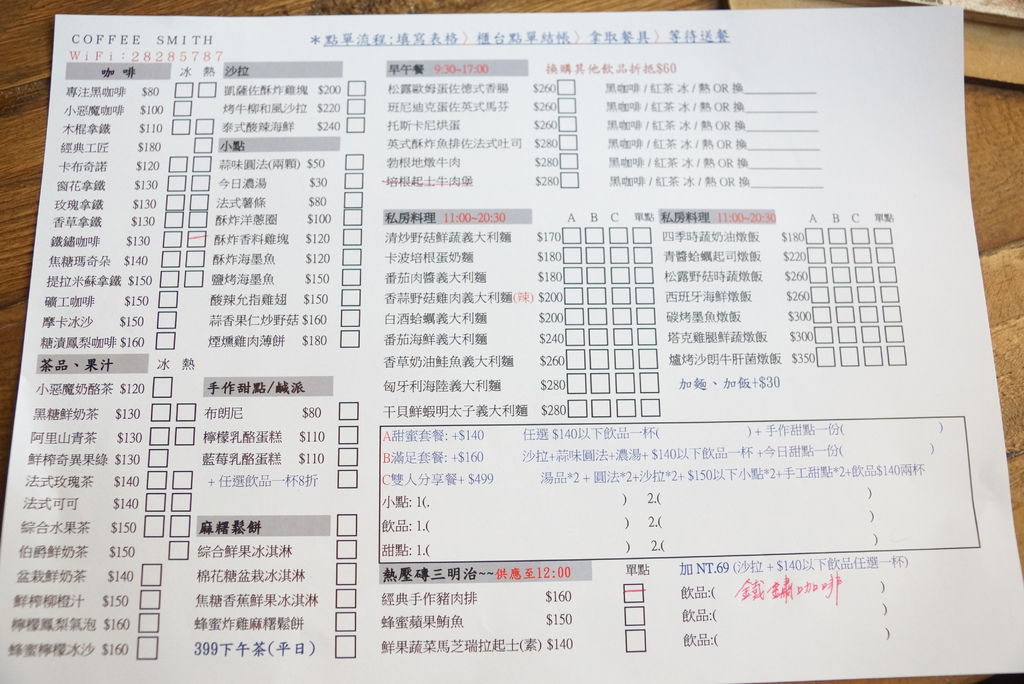 COFFEE SMITH
WiFi：28285787
＊點單流程:填寫表格〉櫃台點單結帳〉拿取餐具〉等待送餐
咖 啡 冰 熱
專注黑咖啡 $80
小惡魔咖啡 $100
木棍拿鐵 $110
經典工匠 $180
卡布奇諾 $120
窗花拿鐵 $130
玫瑰拿鐵 $130
香草拿鐵 $130
鐵鏽咖啡 $130
焦糖瑪奇朵 $140
提拉米蘇拿鐵 $150
礦工咖啡 $150
摩卡冰沙 $150
糖漬鳳梨咖啡 $160
茶品、果汁 冰 熱
小惡魔奶酪茶 $120
黑糖鮮奶茶 $130
阿里山青茶 $130
鮮榨奇異果綠 $130
法式玫瑰茶 $140
法式可可 $140
綜合水果茶 $150
伯爵鮮奶茶 $150
盆栽鮮奶茶 $140
鮮榨柳橙汁 $150
檸檬鳳梨氣泡 $160
蜂蜜檸檬冰沙 $160
沙拉
凱薩佐酥炸雞塊 $200
烤牛柳和風沙拉 $220
泰式酸辣海鮮 $240
小點
蒜味圓法(兩顆) $50
今日濃湯 $30
法式薯條 $80
酥炸洋蔥圈 $100
酥炸香料雞塊 $120
酥炸海墨魚 $120
鹽烤海墨魚 $150
酸辣允指雞翅 $150
蒜香果仁炒野菇 $160
煙燻雞肉薄餅 $180
手作甜點/鹹派
布朗尼 $80
檸檬乳酪蛋糕 $110
藍莓乳酪蛋糕 $110
+ 任選飲品一杯8折
麻糬鬆餅
綜合鮮果冰淇淋
棉花糖盆栽冰淇淋
焦糖香蕉鮮果冰淇淋
蜂蜜炸雞麻糬鬆餅
399下午茶(平日)
早午餐 9:30~17:00 換購其他飲品折抵$60
松露歐姆蛋佐德式香腸 $260 黑咖啡 / 紅茶 冰 / 熱 OR 換
班尼迪克蛋佐英式馬芬 $260 黑咖啡 / 紅茶 冰 / 熱 OR 換
托斯卡尼烘蛋 $260 黑咖啡 / 紅茶 冰 / 熱 OR 換
英式酥炸魚排佐法式吐司 $280 黑咖啡 / 紅茶 冰 / 熱 OR 換
勃根地燉牛肉 $280 黑咖啡 / 紅茶 冰 / 熱 OR 換
培根起士牛肉堡 $280 黑咖啡 / 紅茶 冰 / 熱 OR 換
私房料理 11:00~20:30 A B C 單點
清炒野菇鮮蔬義大利麵 $170
卡波培根蛋奶麵 $180
番茄肉醬義大利麵 $180
香蒜野菇雞肉義大利麵(辣) $200
白酒蛤蠣義大利麵 $200
番茄海鮮義大利麵 $240
香草奶油鮭魚義大利麵 $260
匈牙利海陸義大利麵 $280
干貝鮮蝦明太子義大利麵 $280
私房料理 11:00~20:30 A B C 單點
四季時蔬奶油燉飯 $180
青醬蛤蠣起司燉飯 $220
松露野菇時蔬燉飯 $260
西班牙海鮮燉飯 $260
碳烤墨魚燉飯 $300
塔克雞腿鮮蔬燉飯 $300
爐烤沙朗牛肝菌燉飯 $350
加麵、加飯+$30
A甜蜜套餐: +$140 任選 $140以下飲品一杯( ) + 手作甜點一份( )
B滿足套餐: +$160 沙拉+蒜味圓法+濃湯+ $140以下飲品一杯 +今日甜點一份( )
C雙人分享餐+ $499 湯品*2 + 圓法*2+沙拉*2+ $150以下小點*2+手工甜點*2+飲品$140兩杯
小點: 1.( ) 2.( )
飲品: 1.( ) 2.( )
甜點: 1.( ) 2.( )
熱壓磚三明治~~供應至12:00 單點
經典手作豬肉排 $160
蜂蜜蘋果鮪魚 $150
鮮果蔬菜馬芝瑞拉起士(素) $140
加 NT.69 (沙拉 + $140以下飲品任選一杯)
飲品:( 鐵鏽咖啡 )
飲品:( )
飲品:( )